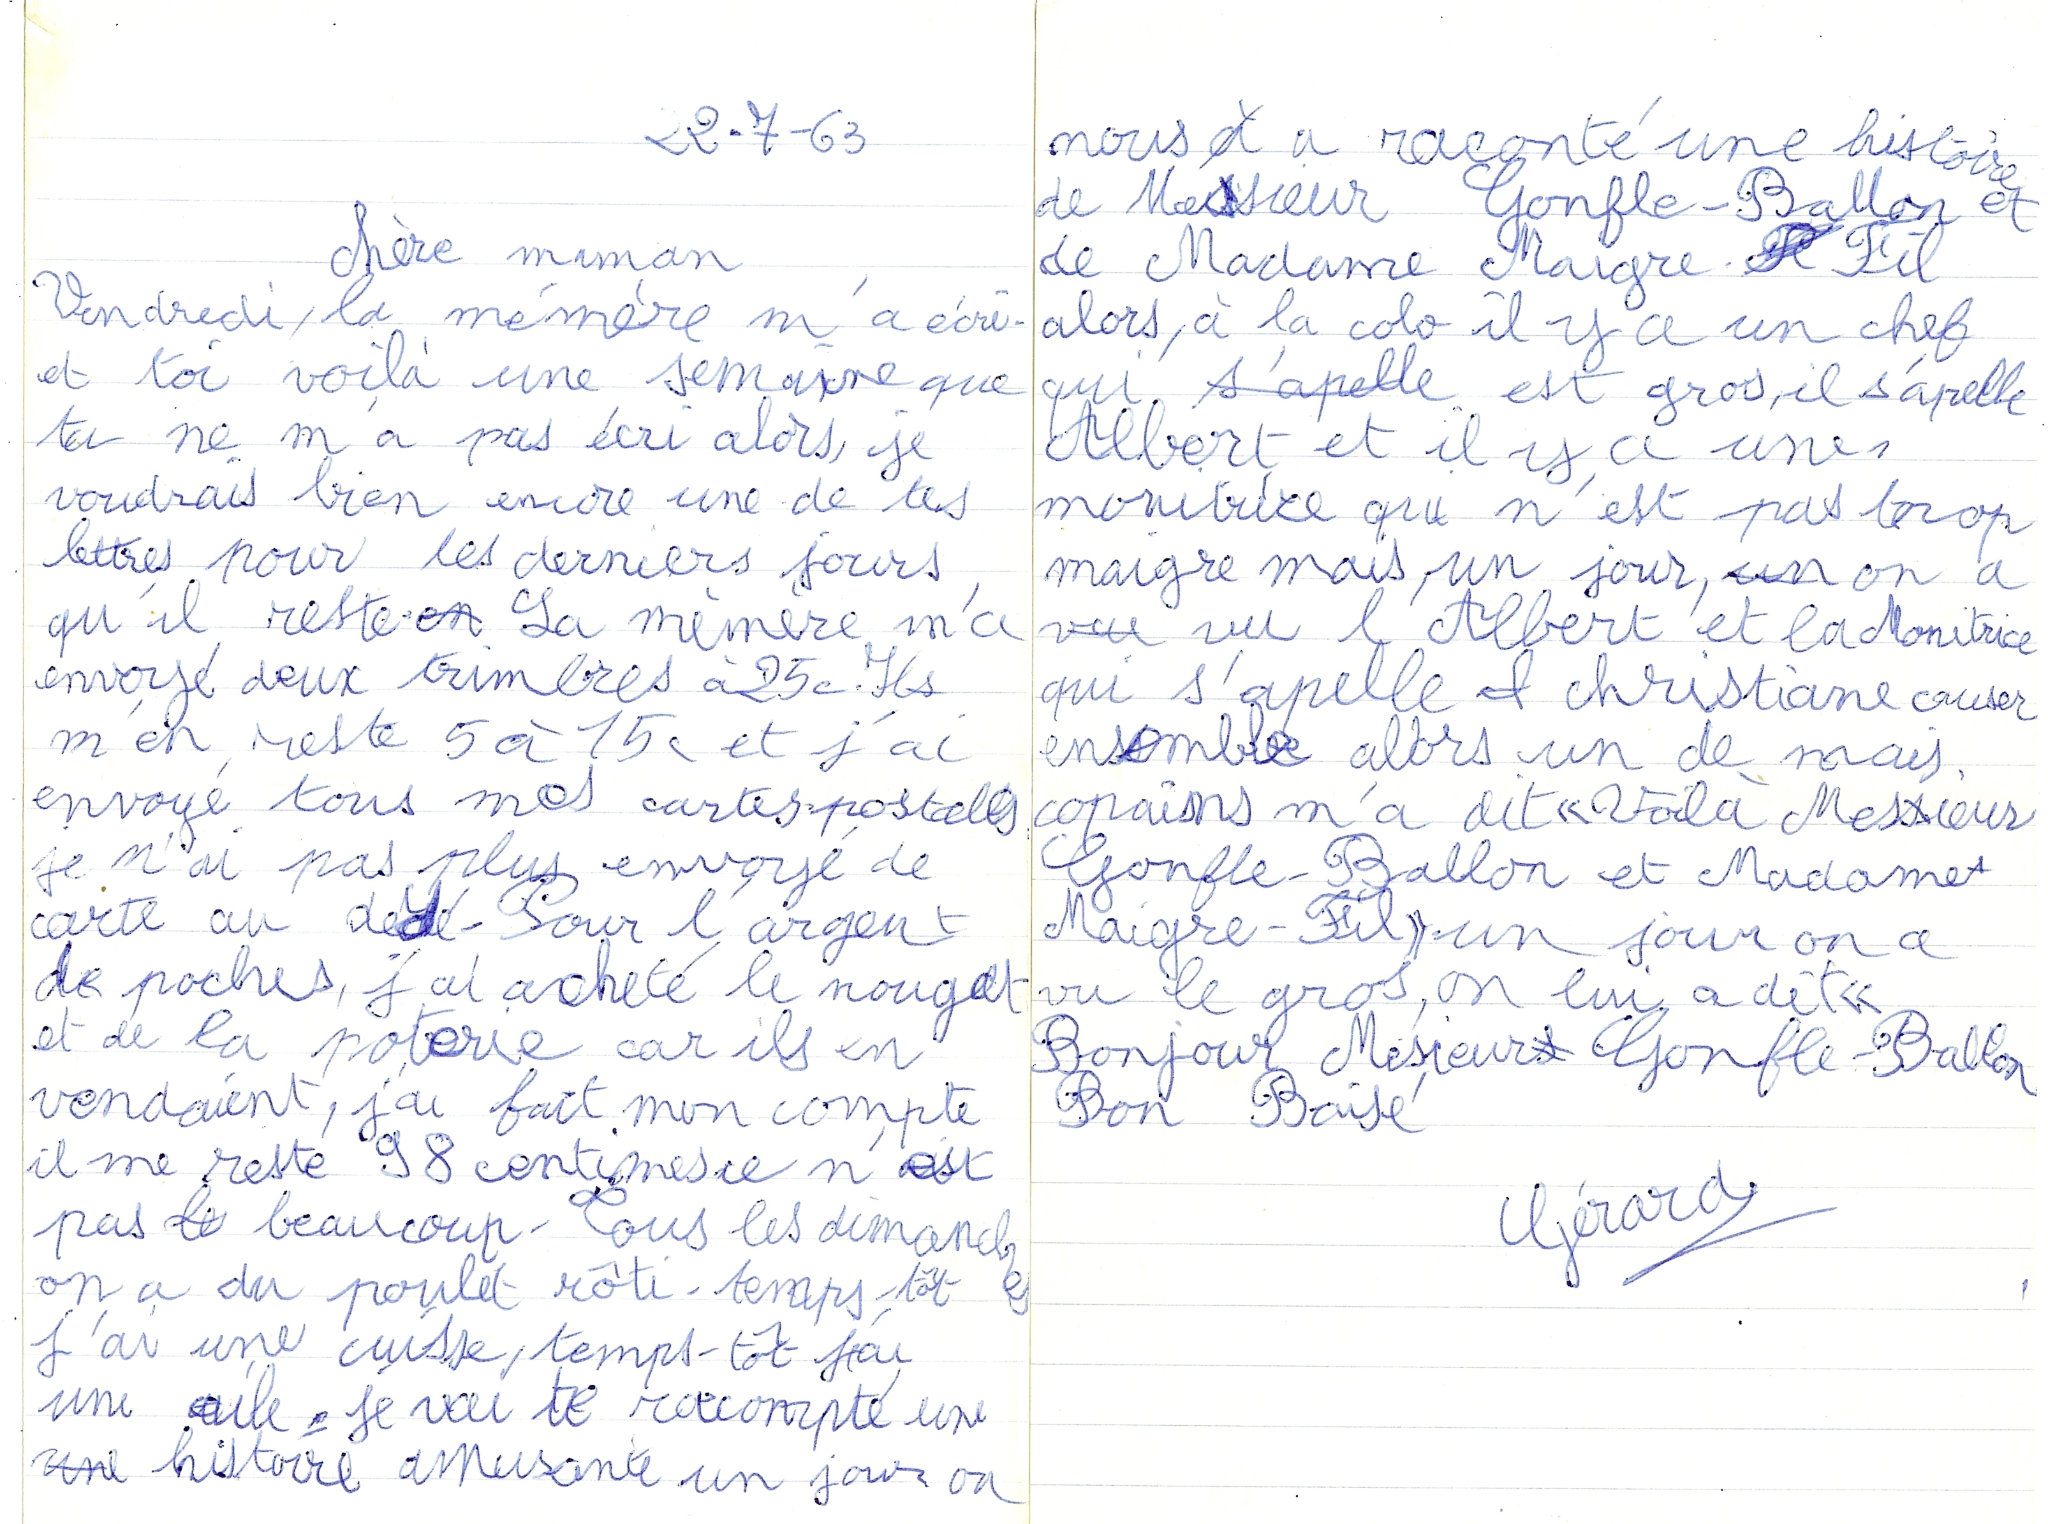 22-7-63
chère maman
Vendredi, la mémère m'a écri-
et toi voilà une semaine que
tu ne m'a pas écri alors, je
voudrais bien encore une de tes
lettres pour les derniers jours
qu'il reste. La mémère m'a
envoyé deux trimbres à 25c. Ils
m'en reste 5 à 15c et j'ai
envoyé tous mes cartes-postalles
je n'ai pas plus envoyé de
carte au dédé - Pour l'argent
de poches, j'ai acheté le nougat
et de la poterie car ils en
vendaient, j'ai fait mon compte
il me reste 98 centimes ce n'est
pas beaucoup - Tous les dimanches
on a du poulet rôti - temps-tôt
j'ai une cuisse, temps-tôt j'ai
une aile - je vai te racompté une
histoire amusante un jour on
nous a raconté une histoire
de Messieur Gonfle-Ballon et
de Madame Maigre-Fil
alors, à la colo il y a un chef
qui est gros, il s'apelle
Albert et il y a une
monitrice qui n'est pas trop
maigre mais, un jour, on a
vu l'Albert et la Monitrice
qui s'apelle christiane causer
ensemble alors un de mais
copains m'a dit « Voilà Messieur
Gonfle-Ballon et Madame
Maigre-Fil » un jour on a
vu le gros, on lui a dit «
Bonjour Mésieur Gonfle-Ballon
Bon Baisé
Gérard